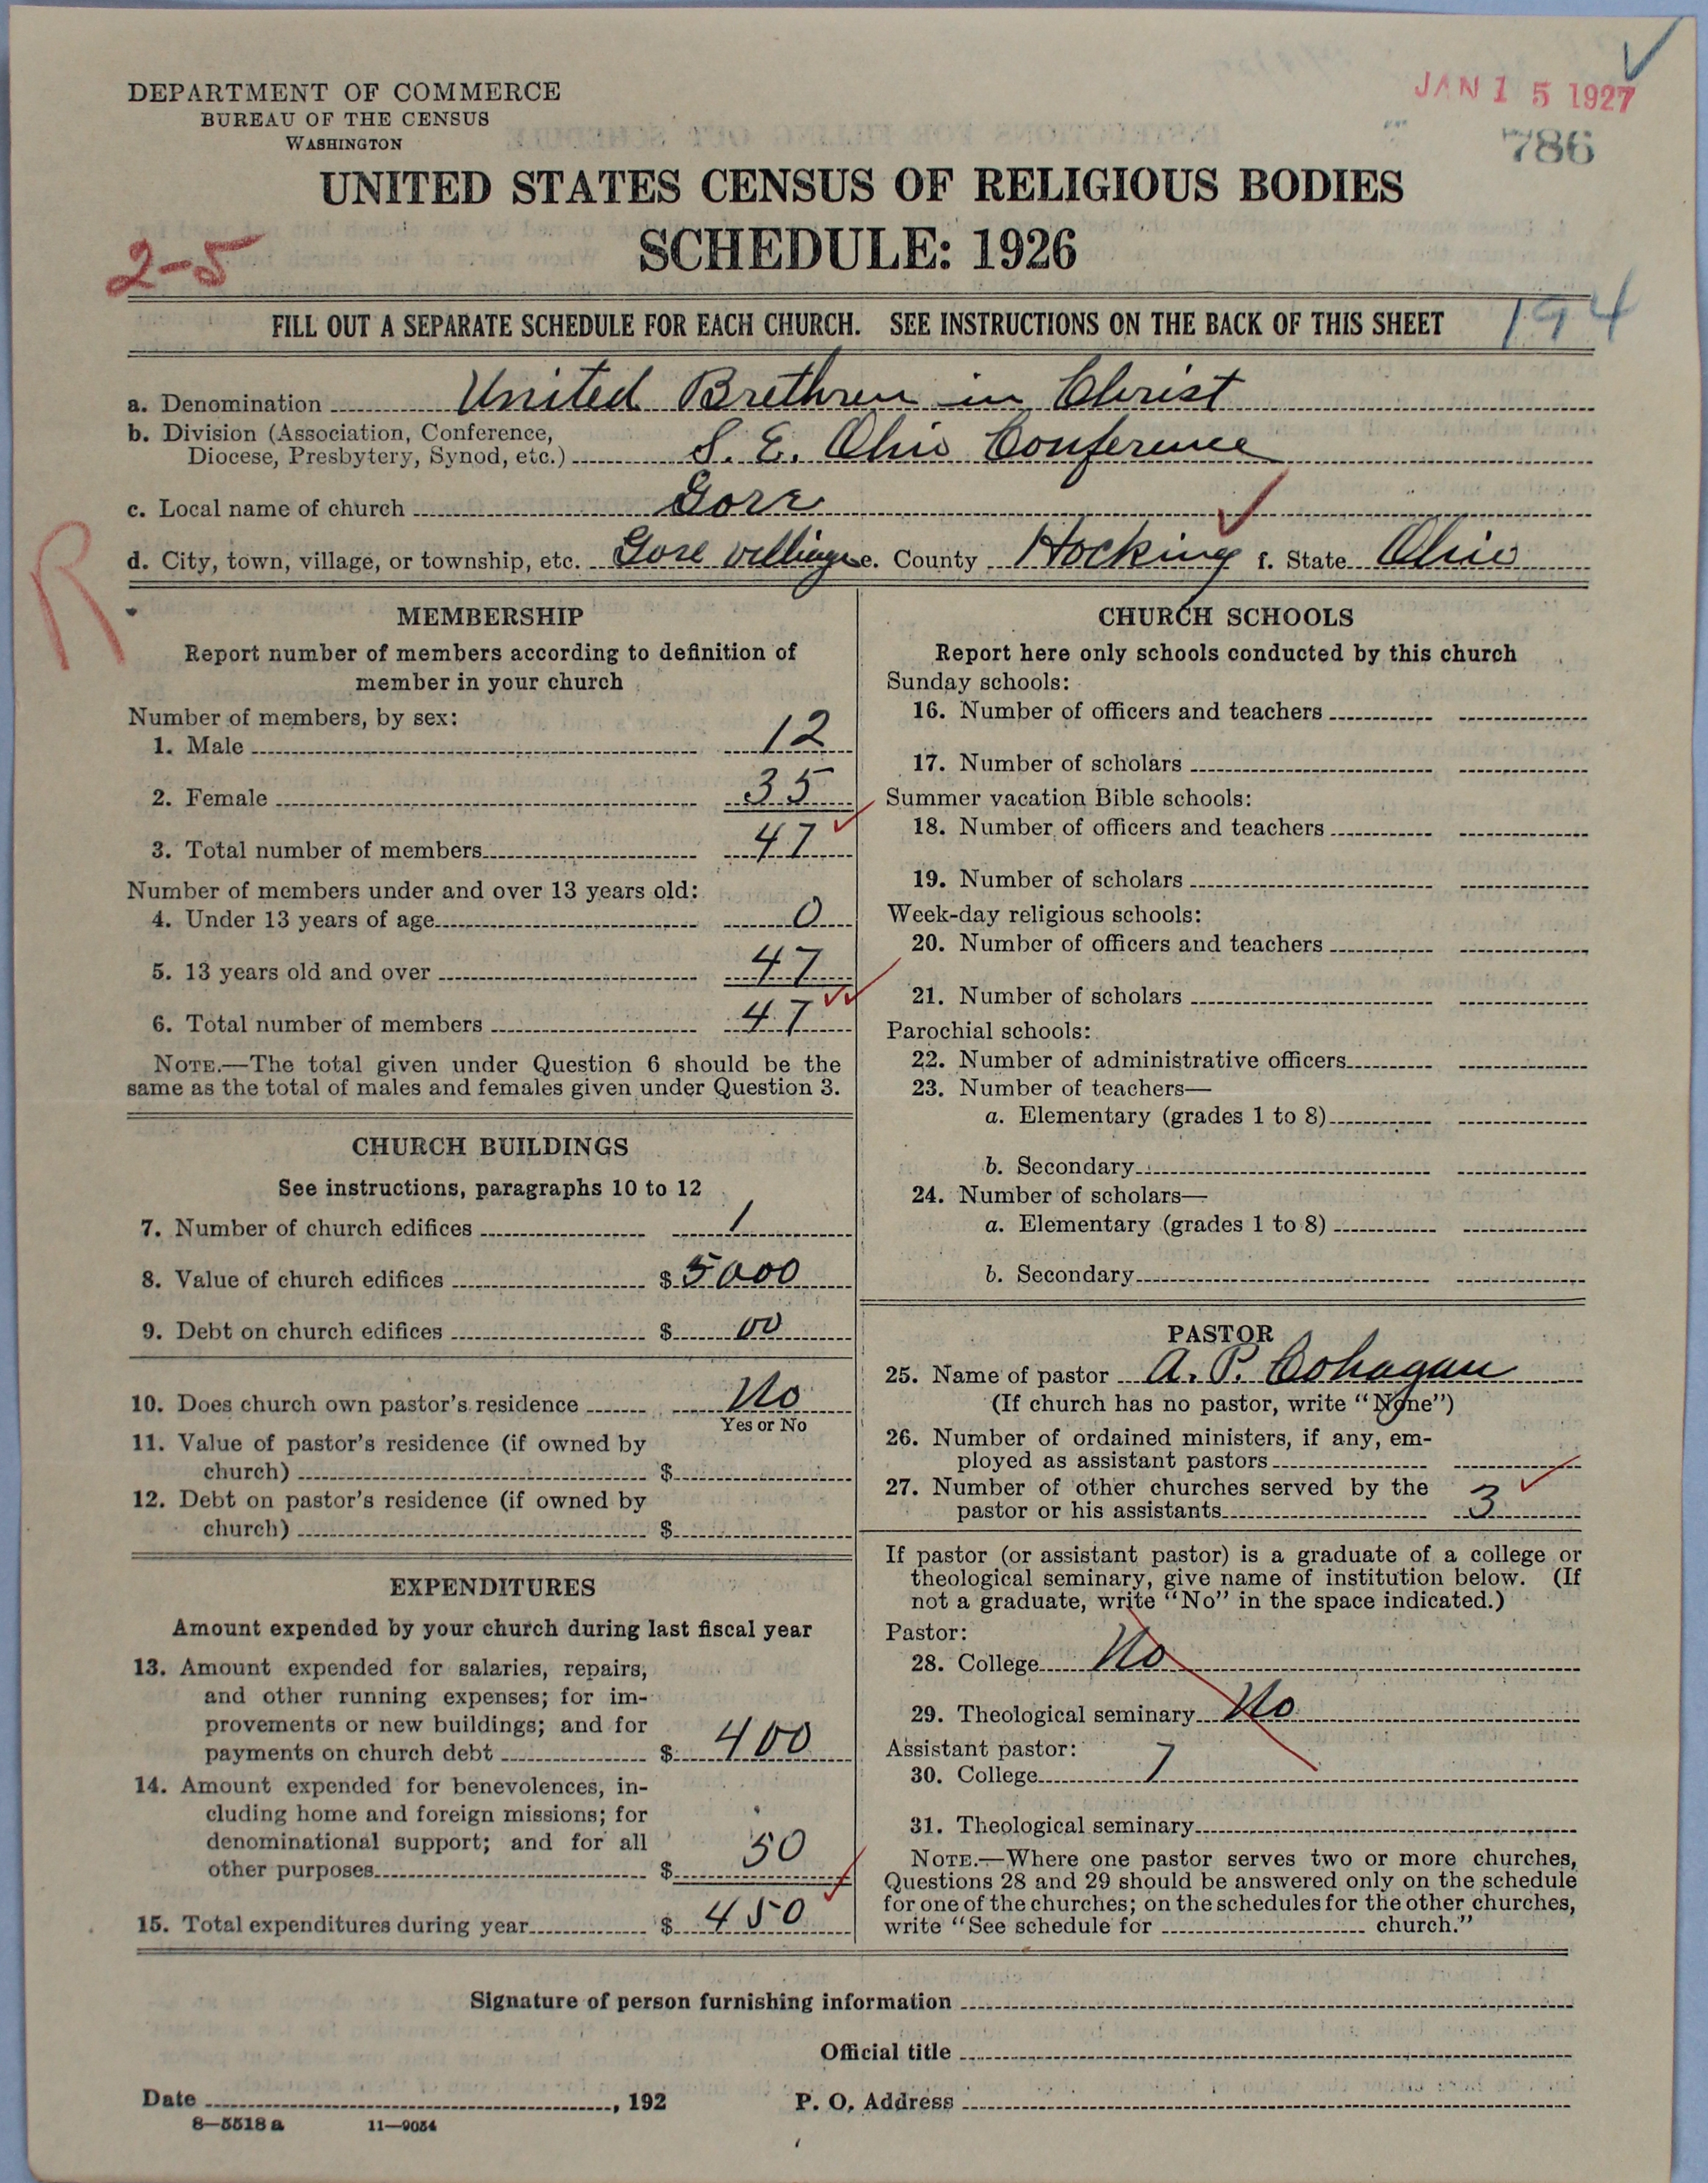 JAN 15 1927
786
DEPARTMENT OF COMMERCE
BUREAU OF THE CENSUS
WASHINGTON
UNITED STATES CENSUS OF RELIGIOUS BODIES
SCHEDULE: 1926
2-5
FILL OUT A SEPARATE SCHEDULE FOR EACH CHURCH. SEE INSTRUCTIONS ON THE BACK OF THIS SHEET
194
a. Denomination United Brethren in Christ
b. Division (Association, Conference,
Diocese, Presbytery, Synod, etc.) S. E. Ohio Conference
c. Local name of church Gore
d. City, town, village, or township, etc. Gore village e. County Hocking f. State Ohio
R
MEMBERSHIP
Report number of members according to definition of
member in your church
Number of members, by sex:
1. Male 12
2. Female 35
3. Total number of members 47
Number of members under and over 13 years old:
4. Under 13 years of age 0
5. 13 years old and over 47
6. Total number of members 47
NOTE.—The total given under Question 6 should be the
same as the total of males and females given under Question 3.
CHURCH BUILDINGS
See instructions, paragraphs 10 to 12
7. Number of church edifices 1
8. Value of church edifices $ 5000
9. Debt on church edifices $ 00
10. Does church own pastor's residence No
Yes or No
11. Value of pastor's residence (if owned by
church) $
12. Debt on pastor's residence (if owned by
church) $
EXPENDITURES
Amount expended by your church during last fiscal year
13. Amount expended for salaries, repairs,
and other running expenses; for im-
provements or new buildings; and for
payments on church debt $ 400
14. Amount expended for benevolences, in-
cluding home and foreign missions; for
denominational support; and for all
other purposes $ 50
15. Total expenditures during year $ 450
CHURCH SCHOOLS
Report here only schools conducted by this church
Sunday schools:
16. Number of officers and teachers
17. Number of scholars
Summer vacation Bible schools:
18. Number of officers and teachers
19. Number of scholars
Week-day religious schools:
20. Number of officers and teachers
21. Number of scholars
Parochial schools:
22. Number of administrative officers
23. Number of teachers—
a. Elementary (grades 1 to 8)
b. Secondary
24. Number of scholars—
a. Elementary (grades 1 to 8)
b. Secondary
PASTOR
25. Name of pastor A. P. Cohagan
(If church has no pastor, write "None")
26. Number of ordained ministers, if any, em-
ployed as assistant pastors
27. Number of other churches served by the
pastor or his assistants 3
If pastor (or assistant pastor) is a graduate of a college or
theological seminary, give name of institution below. (If
not a graduate, write "No" in the space indicated.)
Pastor:
28. College No
29. Theological seminary No
Assistant pastor:
30. College 7
31. Theological seminary
NOTE.—Where one pastor serves two or more churches,
Questions 28 and 29 should be answered only on the schedule
for one of the churches; on the schedules for the other churches,
write "See schedule for church."
Signature of person furnishing information
Official title
Date , 192 P. O. Address
8—5518 a 11—9054